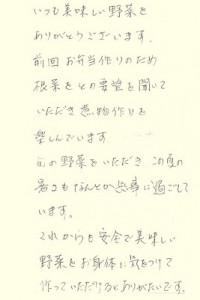 いつも美味しい野菜を
ありがとうございます.
前回お弁当作りのため
根菜をとの要望を聞いて
いただき煮物作りを
楽しんでいます
旬の野菜をいただき この夏の
暑さもなんとか無事に過ごして
います.
これからも安全で美味しい
野菜をお身体に気をつけて
作っていただけるとありがたいです.